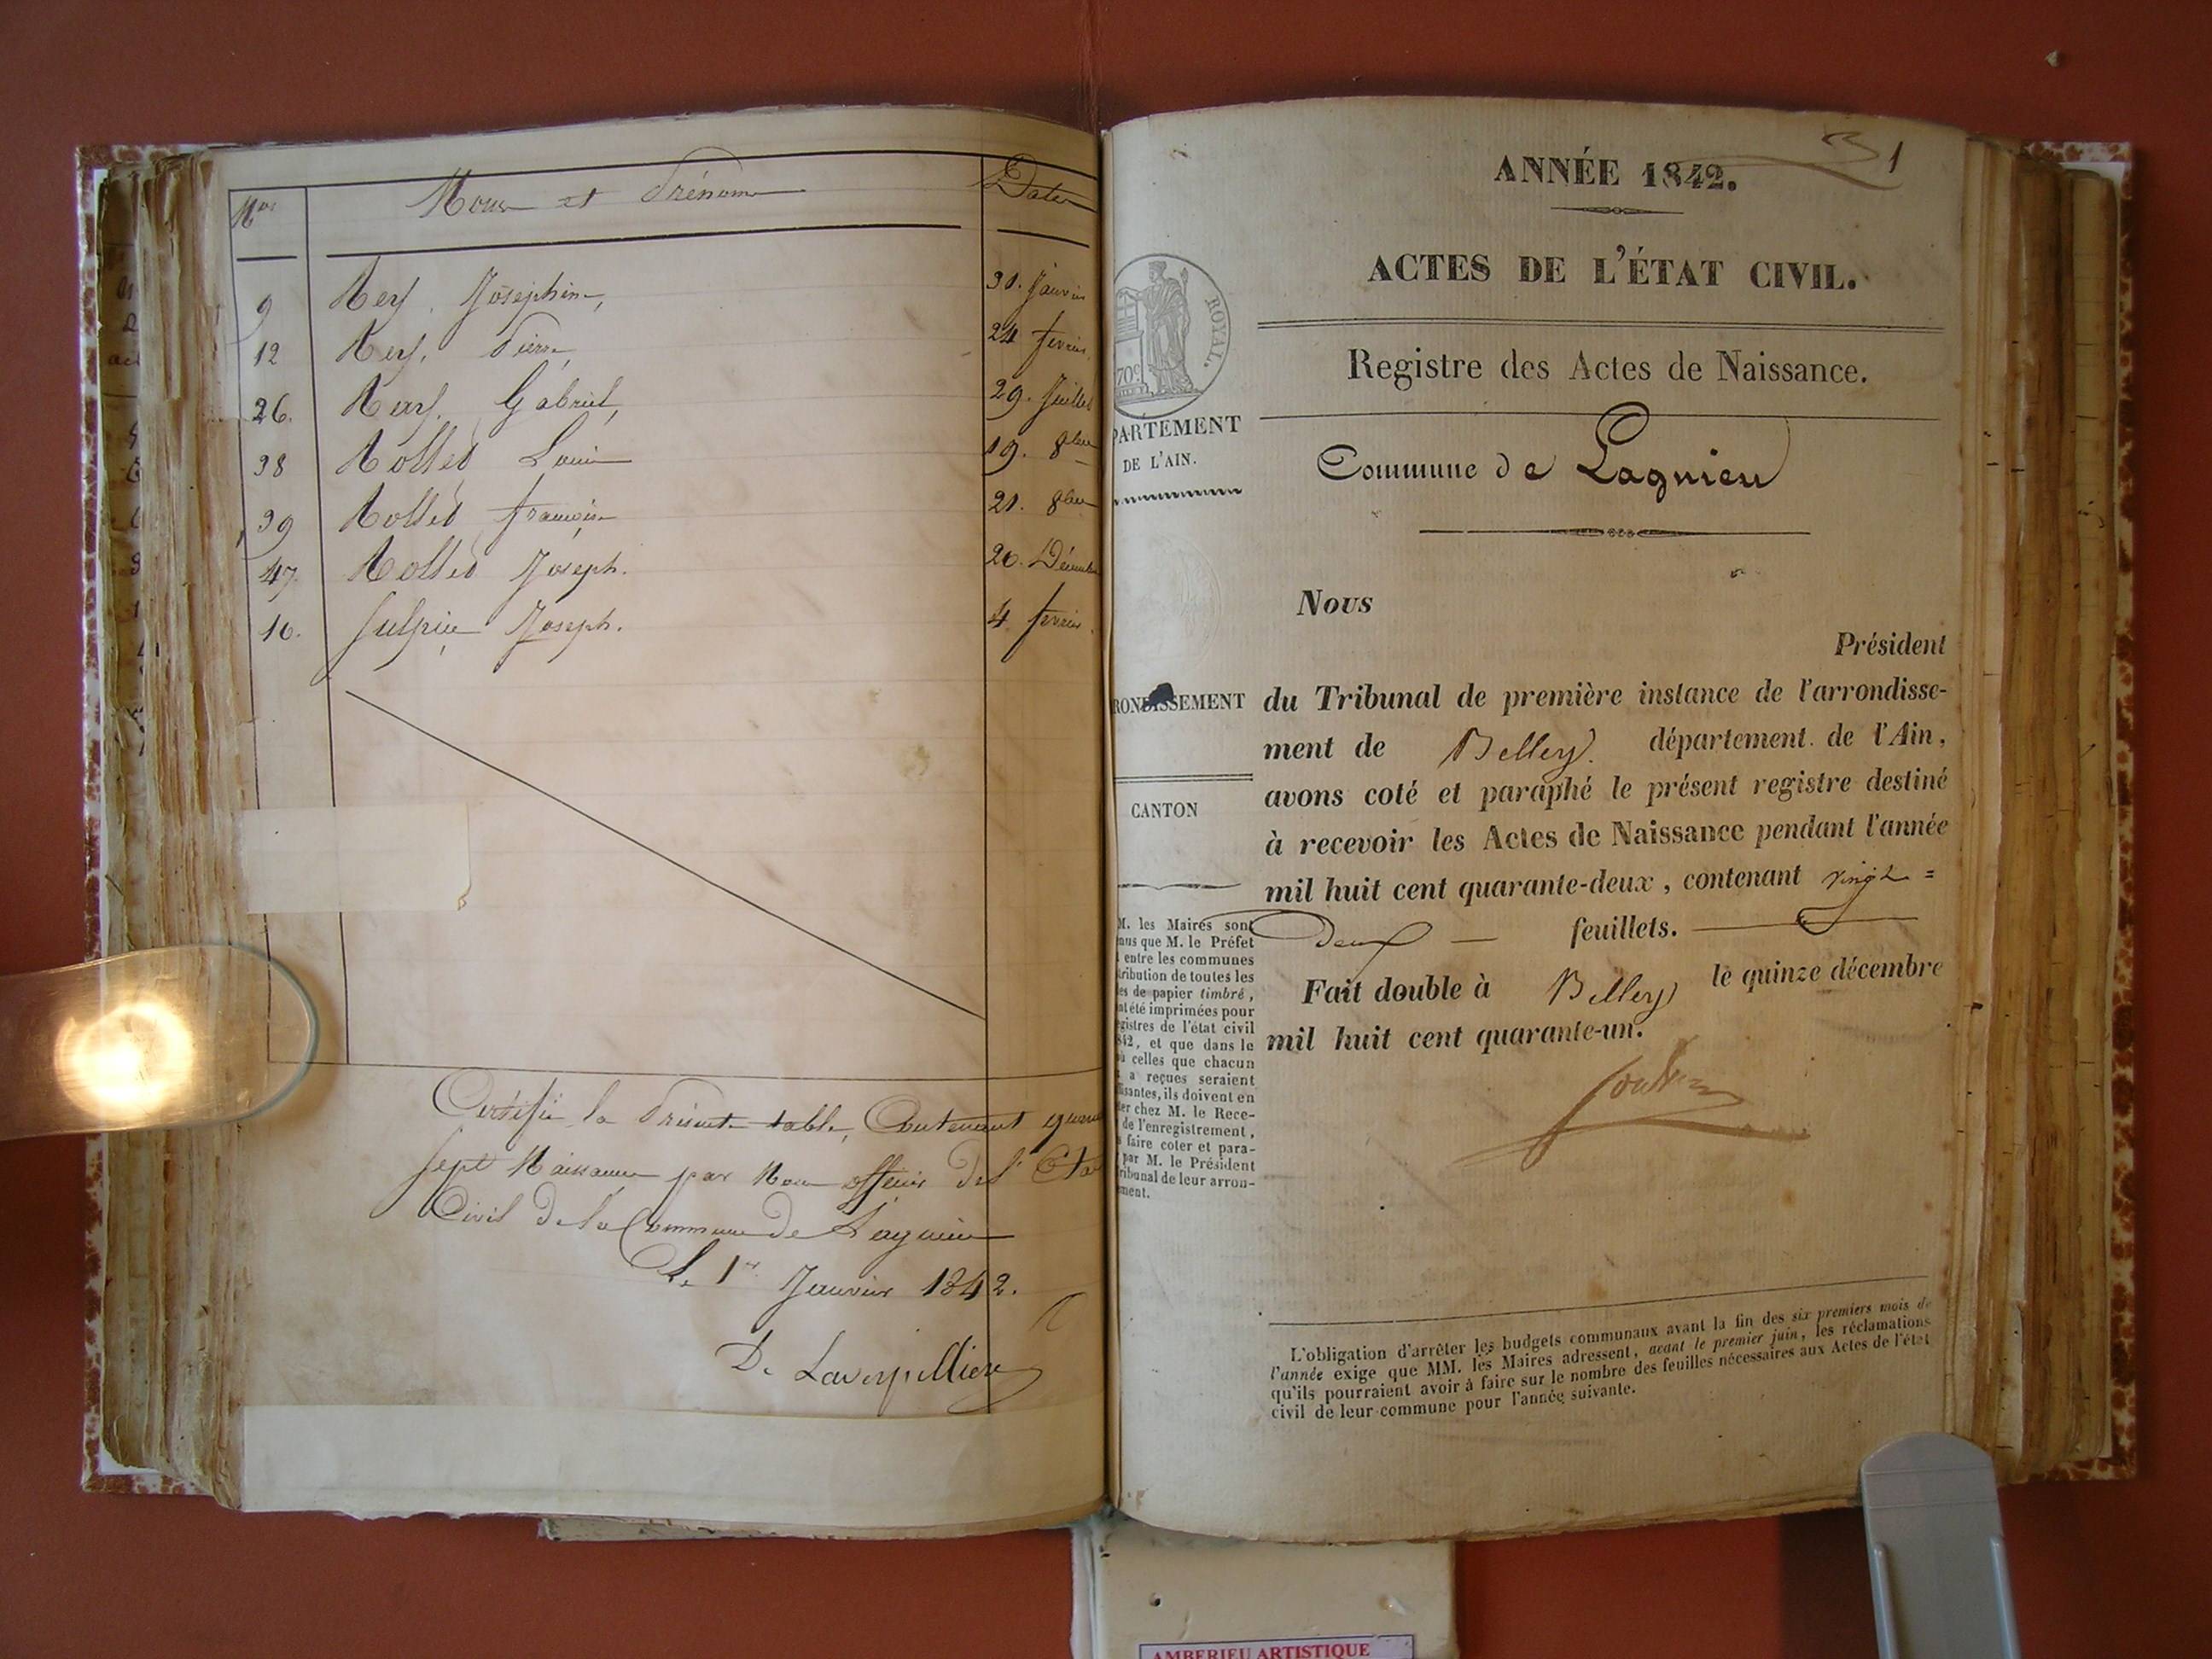 Nos Noms et Prénoms Dates
9 Rey Joséphine, 31. Janvier
12 Rey. Pierre, 24 fevrier
26. Rey. Gabriel, 29. Juillet
38 Rollet Louis 19. 8bre
39 Rollet françoise 21. 8bre
47. Rollet Joseph. 20. Décembre
10. Sulpice Joseph. 4 fevrier
Certifié la présente table, Contenant
sept Naissances par Nous officier De l'Eta
Civil De la Commune De Lagnieu
Le 1er Janvier 1842.
De Laverpilliere
1
ANNÉE 1842.
ACTES DE L'ÉTAT CIVIL.
ROYAL.
70c
Registre des Actes de Naissance.
PARTEMENT
DE L'AIN.
Commune de Lagnieu
Nous
Président
RONDISSEMENT
du Tribunal de première instance de l'arrondisse-
ment de Belley. département de l'Ain,
avons coté et paraphé le présent registre destiné
CANTON
à recevoir les Actes de Naissance pendant l'année
mil huit cent quarante-deux, contenant vingt =
Deux — feuillets.
Fait double à Belley le quinze décembre
mil huit cent quarante-un.
M. les Maires sont
nus que M. le Préfet
entre les communes
tribution de toutes les
es de papier timbré,
nt été imprimées pour
egistres de l'état civil
842, et que dans le
ù celles que chacun
a reçues seraient
ffisantes, ils doivent en
ter chez M. le Rece-
de l'enregistrement,
faire coter et para-
par M. le Président
ribunal de leur arron-
ment.
L'obligation d'arrêter les budgets communaux avant la fin des six premiers mois de
l'année exige que MM. les Maires adressent, avant le premier juin, les réclamations
qu'ils pourraient avoir à faire sur le nombre des feuilles nécessaires aux Actes de l'état
civil de leur commune pour l'année suivante.
AMBERIEU ARTISTIQUE